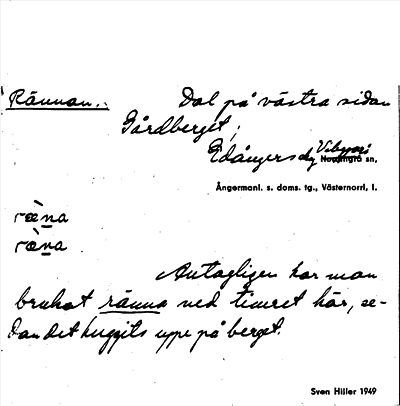 Rännan.. Dal på västra sidan
Gårdberget;
Edångers dg, Vibyggerå
Nordingrå sn,
Ångermanl. s. doms. tg., Västernorrl, l.
ræ̀na
ræ̀na
Antagligen har man
brukat ränna ned timret här, se-
dan det huggits uppe på berget.
Sven Hiller 1949